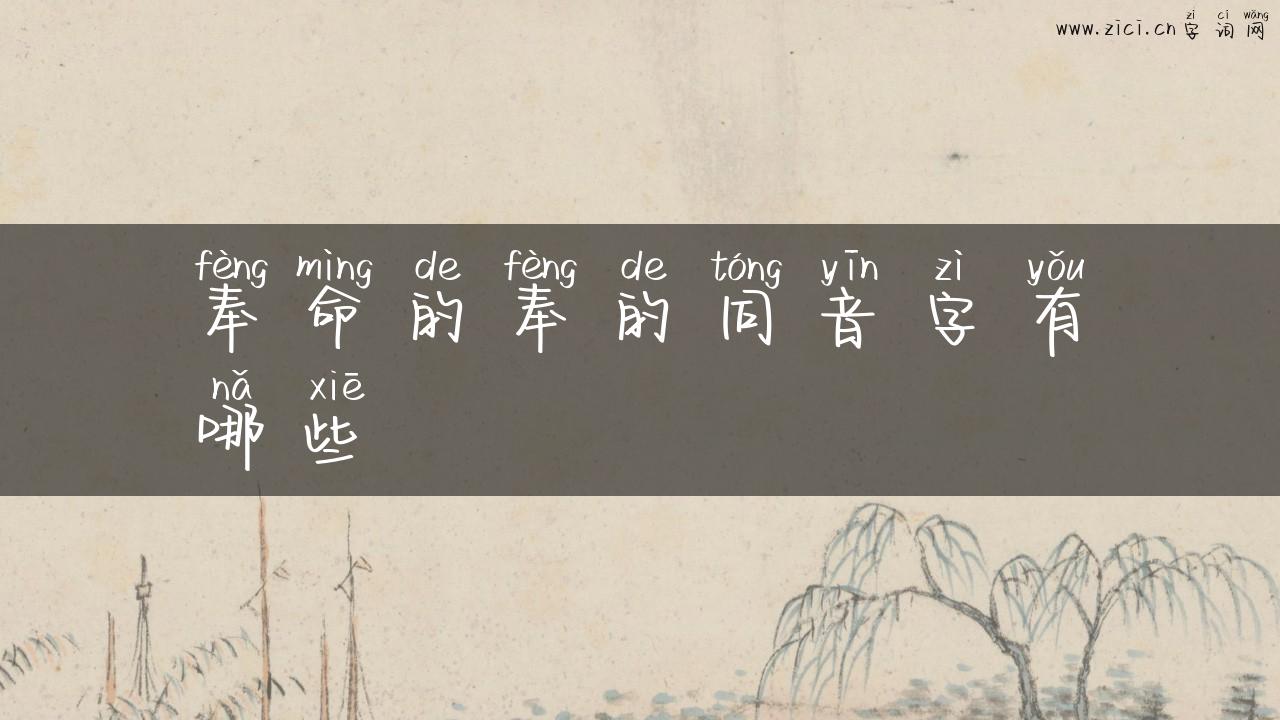 zì cí wǎng
www.zici.cn字词网
fèng mìng de fèng de tóng yīn zì yǒu
奉命的奉的同音字有
nǎ xiē
哪些